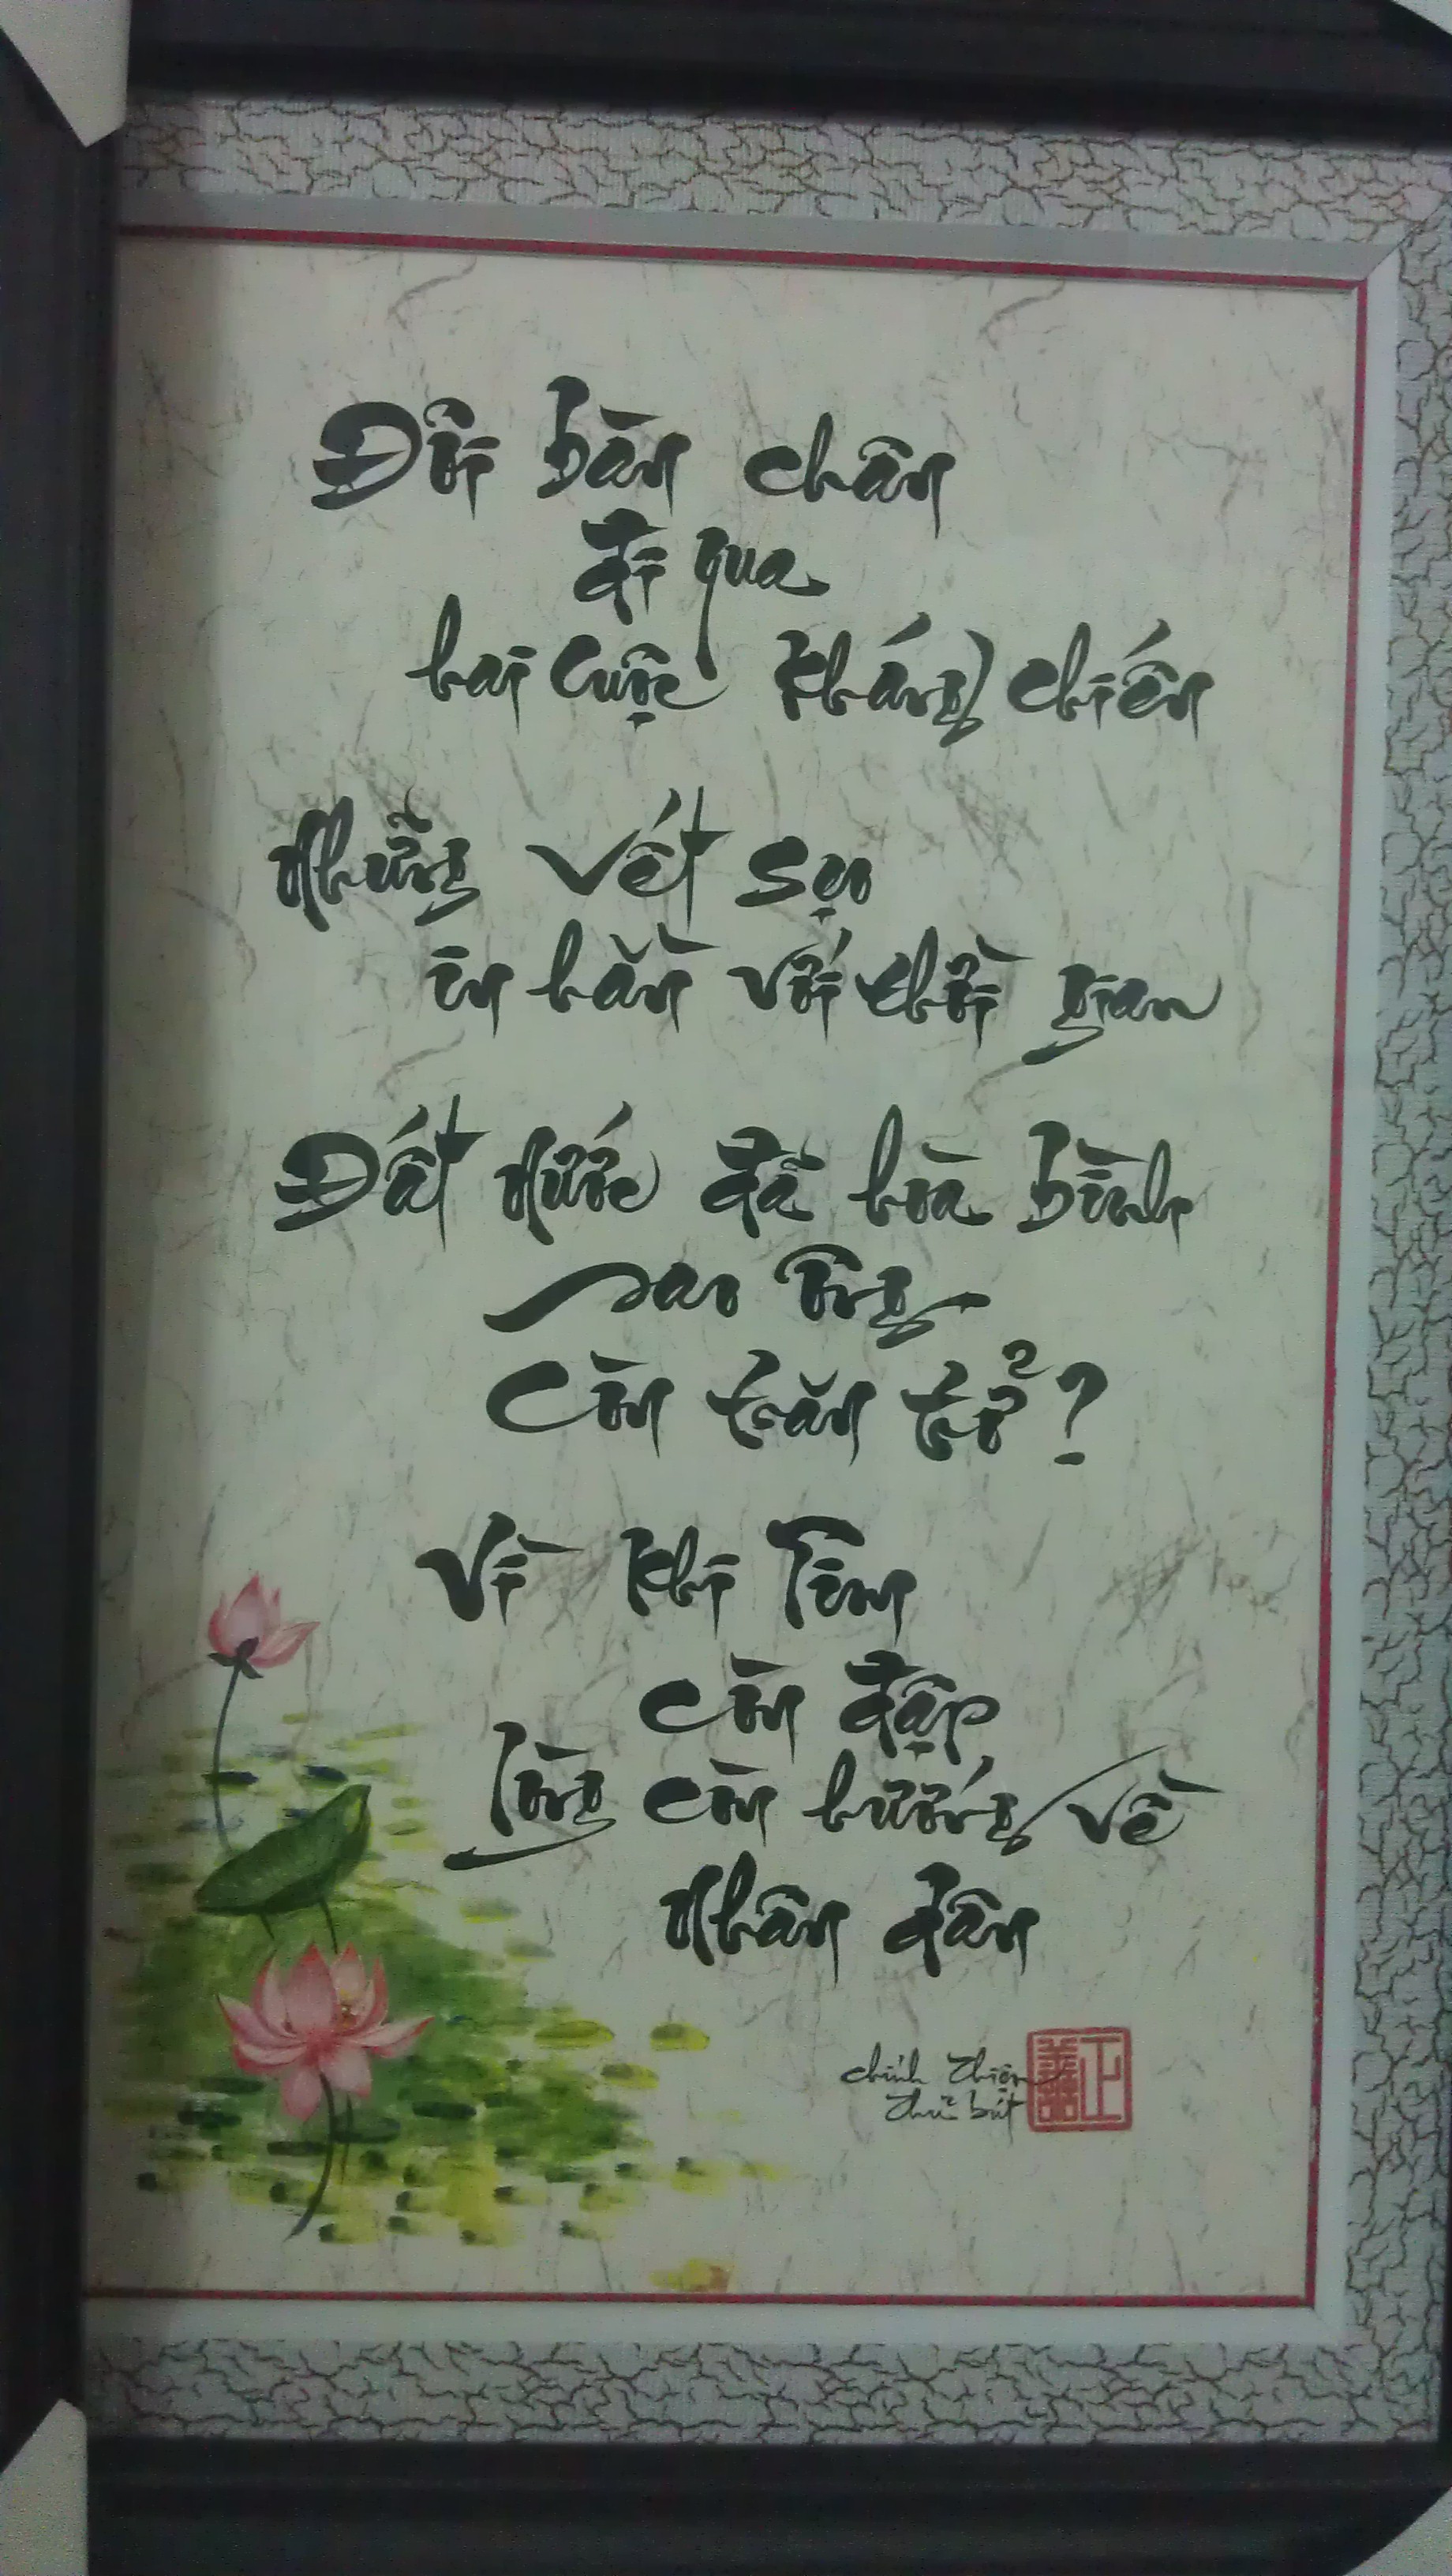 Đôi bàn chân
đi qua
hai cuộc kháng chiến
Những vết sẹo
in hằn với thời gian
Đất nước đã hoà bình
sao ông
còn trăn trở?
Vì khi tim
còn đập
lòng còn hướng về
nhân dân
chính Thiện
thư bút
正善